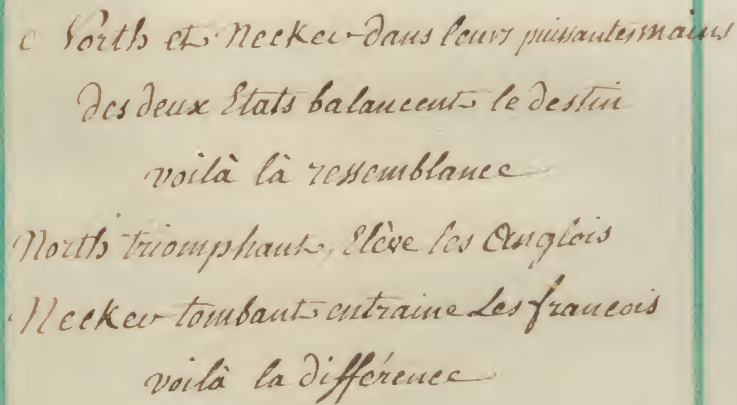 North et Necker dans leurs puissantes mains
des deux Etats balancent le destin
voilà là ressemblance
North triomphant, Elève les Anglois
Necker tombant entraine Les francois
voilà la différence